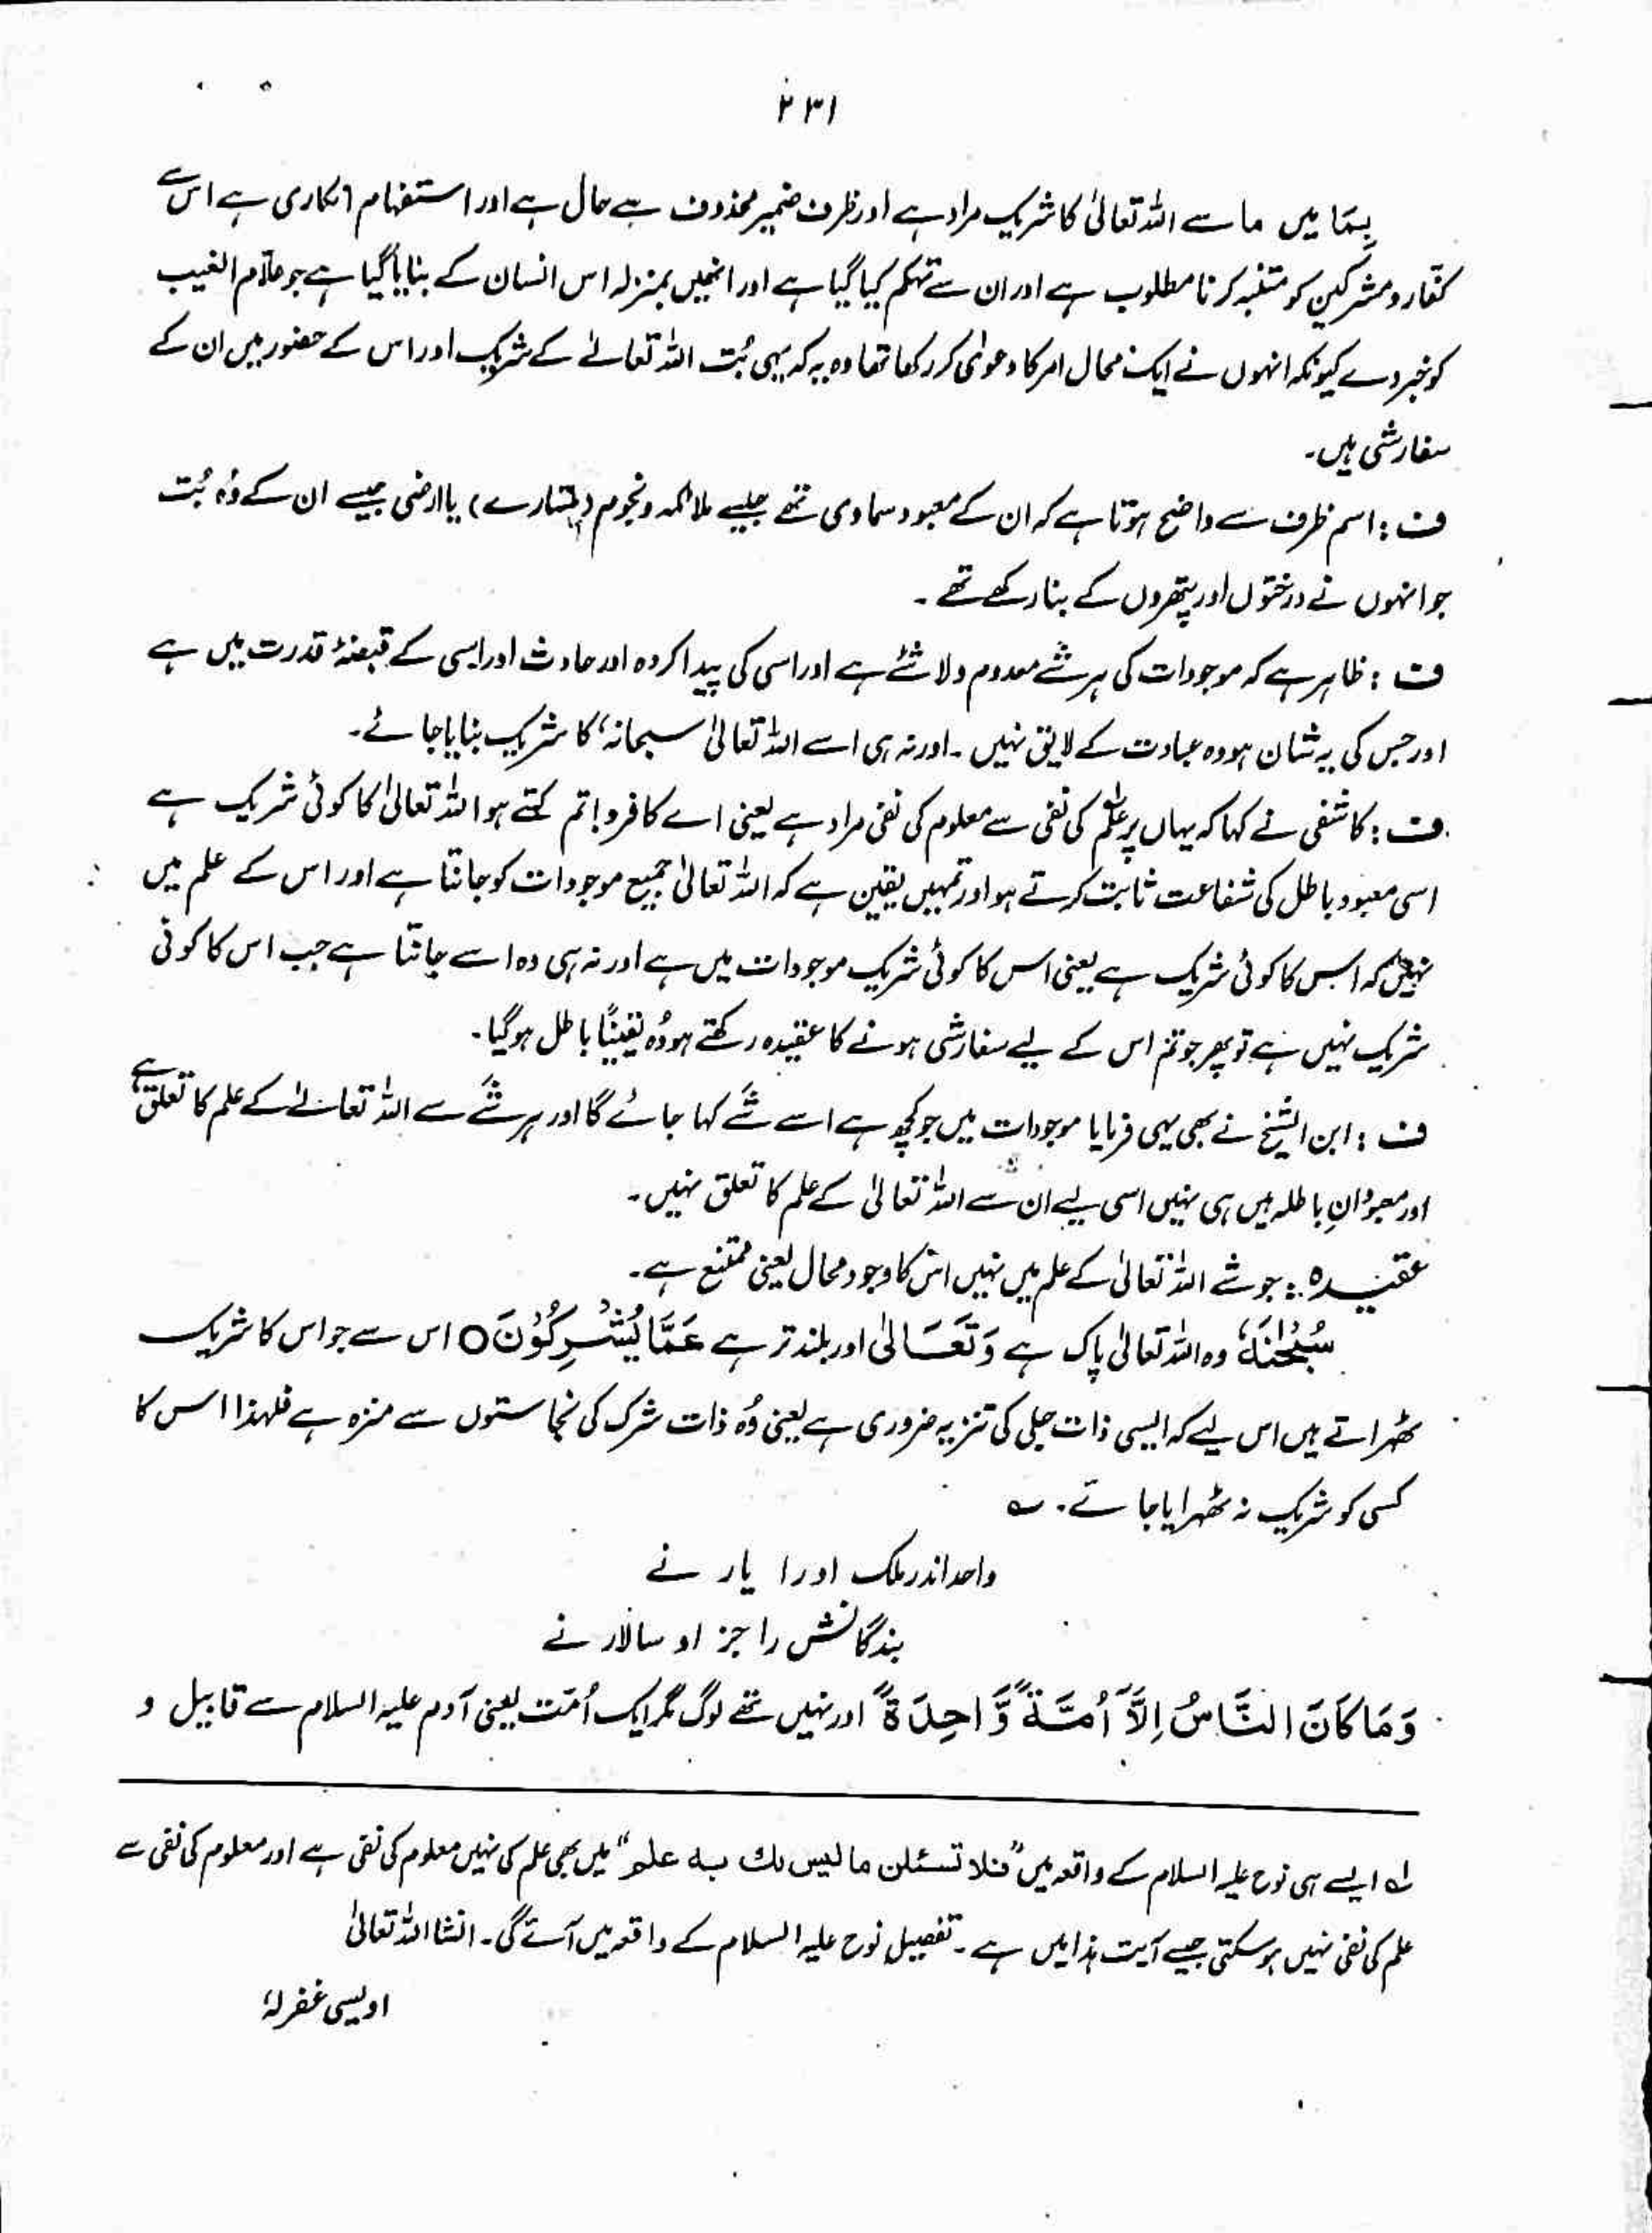 ۲۳۱
بِمَا میں ما سے اللہ تعالیٰ کا شریک مراد ہے اور ظرف ضمیر محذوف سے حال ہے اور استفہام انکاری ہے اس سے
کفّار و مشرکین کو متنبہ کرنا مطلوب ہے اور ان سے تہکم کیا گیا ہے اور انھیں بمنزلہ اس انسان کے بنایا گیا ہے جو علّام الغیب
کو خبر دے کیونکہ انہوں نے ایک محال امر کا دعوٰی کر رکھا تھا وہ یہ کہ یہی بُت اللہ تعالےٰ کے شریک اور اس کے حضور میں ان کے
سفارشی ہیں۔
ف : اسم ظرف سے واضح ہوتا ہے کہ ان کے معبود سماوی تھے جیسے ملائکہ و نجوم (ستارے) یا ارضی جیسے ان کے وُہ بُت
جو انہوں نے درختوں اور پتھروں کے بنا رکھے تھے ۔
ف : ظاہر ہے کہ موجودات کی ہر شے معدوم و لاشئے ہے اور اسی کی پیدا کردہ اور حادث اور اسی کے قبضۂ قدرت میں ہے
اور جس کی یہ شان ہو وہ عبادت کے لایق نہیں ۔ اور نہ ہی اسے اللہ تعالیٰ سبحانہٗ کا شریک بنایا جائے۔
ف : کاشفی نے کہا کہ یہاں پر علم کی نفی سے معلوم کی نفی مراد ہے یعنی اے کافرو! تم کہتے ہو اللہ تعالیٰ کا کوئی شریک ہے
اسی معبود باطل کی شفاعت ثابت کرتے ہو اور تمہیں یقین ہے کہ اللہ تعالیٰ جمیع موجودات کو جانتا ہے اور اس کے علم میں
نہیں کہ اس کا کوئی شریک ہے یعنی اس کا کوئی شریک موجودات میں ہے اور نہ ہی وہ اسے جانتا ہے جب اس کا کوئی
شریک نہیں ہے تو پھر جو تم اس کے لیے سفارشی ہونے کا عقیدہ رکھتے ہو وُہ یقیناً باطل ہو گیا۔
ف : ابن الشیخ نے بھی یہی فرمایا موجودات میں جو کچھ ہے اسے شَے کہا جائے گا اور ہر شَے سے اللہ تعالےٰ کے علم کا تعلق ہے
اور معبودانِ باطلہ ہیں ہی نہیں اسی لیے ان سے اللہ تعالیٰ کے علم کا تعلق نہیں۔
عقیدہ : جو شے اللہ تعالیٰ کے علم میں نہیں اس کا وجود محال یعنی ممتنع ہے۔
سُبْحٰنَهٗ وہ اللہ تعالیٰ پاک ہے وَتَعَالٰی اور بلند تر ہے عَمَّا یُشْرِكُوْنَ ○ اس سے جو اس کا شریک
ٹھہراتے ہیں اس لیے کہ ایسی ذات جلی کی تنزیہ ضروری ہے یعنی وُہ ذات شرک کی نجاستوں سے منزہ ہے فلہذا اس کا
کسی کو شریک نہ ٹھہرایا جائے۔ ؎
واحد اندر ملک اورا یار نے
بندگانش را جز او سالار نے
وَمَا كَانَ النَّاسُ اِلَّآ اُمَّةً وَّاحِدَةً اور نہیں تھے لوگ مگر ایک اُمّت یعنی آدم علیہ السلام سے قابیل و
لہ ایسے ہی نوح علیہ السلام کے واقعہ میں "فلا تسئلن ما لیس لك به علم" میں بھی علم کی نہیں معلوم کی نفی ہے اور معلوم کی نفی سے
علم کی نفی نہیں ہو سکتی جیسے آیت ہذا میں ہے ۔ تفصیل نوح علیہ السلام کے واقعہ میں آئے گی۔ انشا اللہ تعالیٰ
اویسی غفرلہٗ